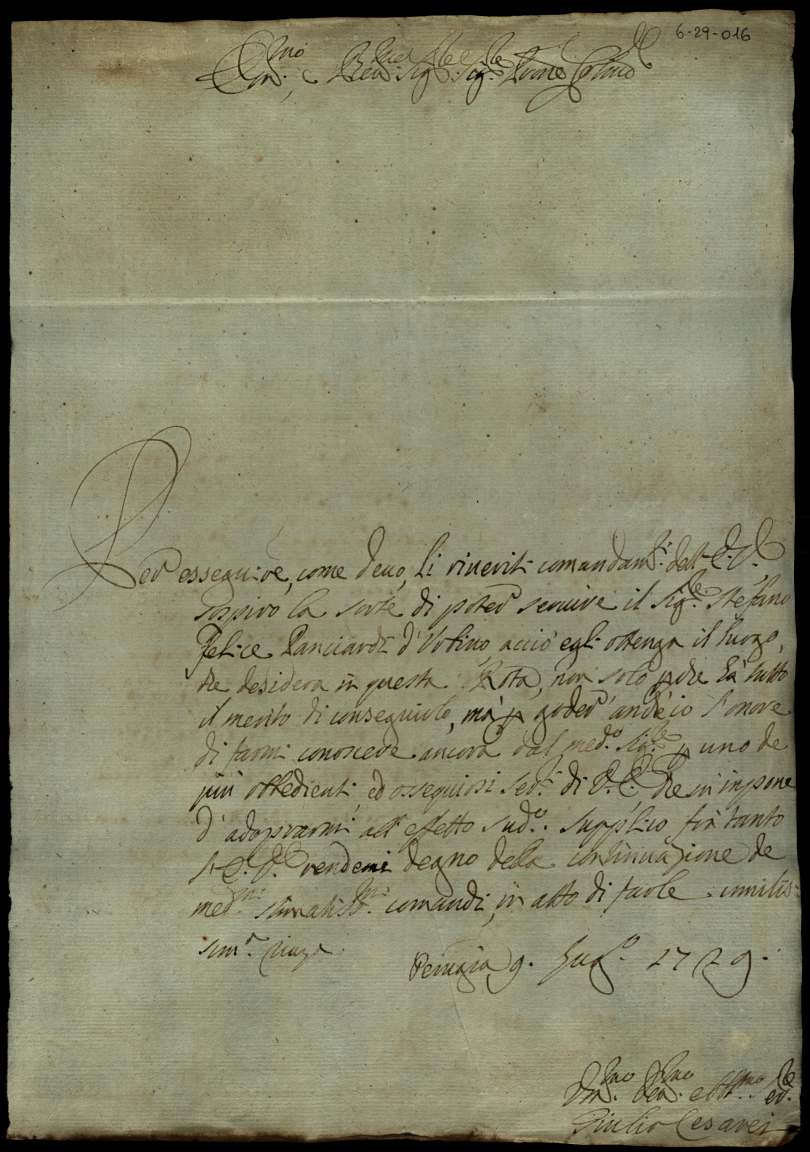 6-29-016
Em.mo e Rev.mo Sig.re Sig.re Prone Colend
Per esseguire, come deuo, li riueriti comandam.ti dell'E.V.
sospiro la sorte di poter seruire il Sig.re Stefano
Felice d'Vrbino acciò egli ottenga il luogo,
che desidera in questa Rota, non solo p che hà tutto
il merito di conseguirlo, mà p goder anch'io l'onore
di farmi conoscere ancora dal med.o Sig.re p uno de
più obbedienti, ed ossequiosi Ser.ri di V.E. che m'impone
d'adoprarmi all'effetto sud.o. Supplico frà tanto
l'E.V. rendermi degno della continuazione de
med.mi stimatiss.mi comandi, in atto di farle umilis-
sim.a
Perugia 9. Lug.o 1729.
Vm.mo Deu.mo et Obb.mo
Giulio Cesarei